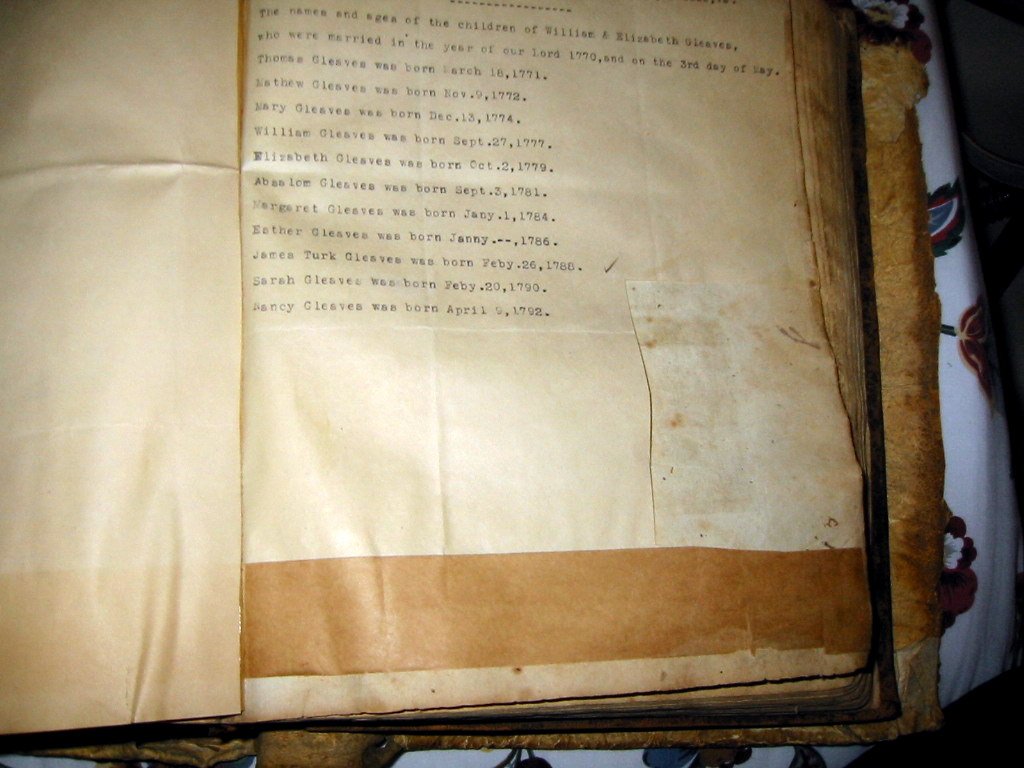 The names and ages of the children of William & Elizabeth Gleaves,
who were married in the year of our Lord 1770,and on the 3rd day of May.
Thomas Gleaves was born March 18,1771.
Mathew Gleaves was born Nov.9,1772.
Mary Gleaves was born Dec.13,1774.
William Gleaves was born Sept.27,1777.
Elizabeth Gleaves was born Oct.2,1779.
Absalom Gleaves was born Sept.3,1781.
Margaret Gleaves was born Jany.1,1784.
Esther Gleaves was born Janny.--,1786.
James Turk Gleaves was born Feby.26,1788. ✓
Sarah Gleaves was born Feby.20,1790.
Nancy Gleaves was born April 9,1792.